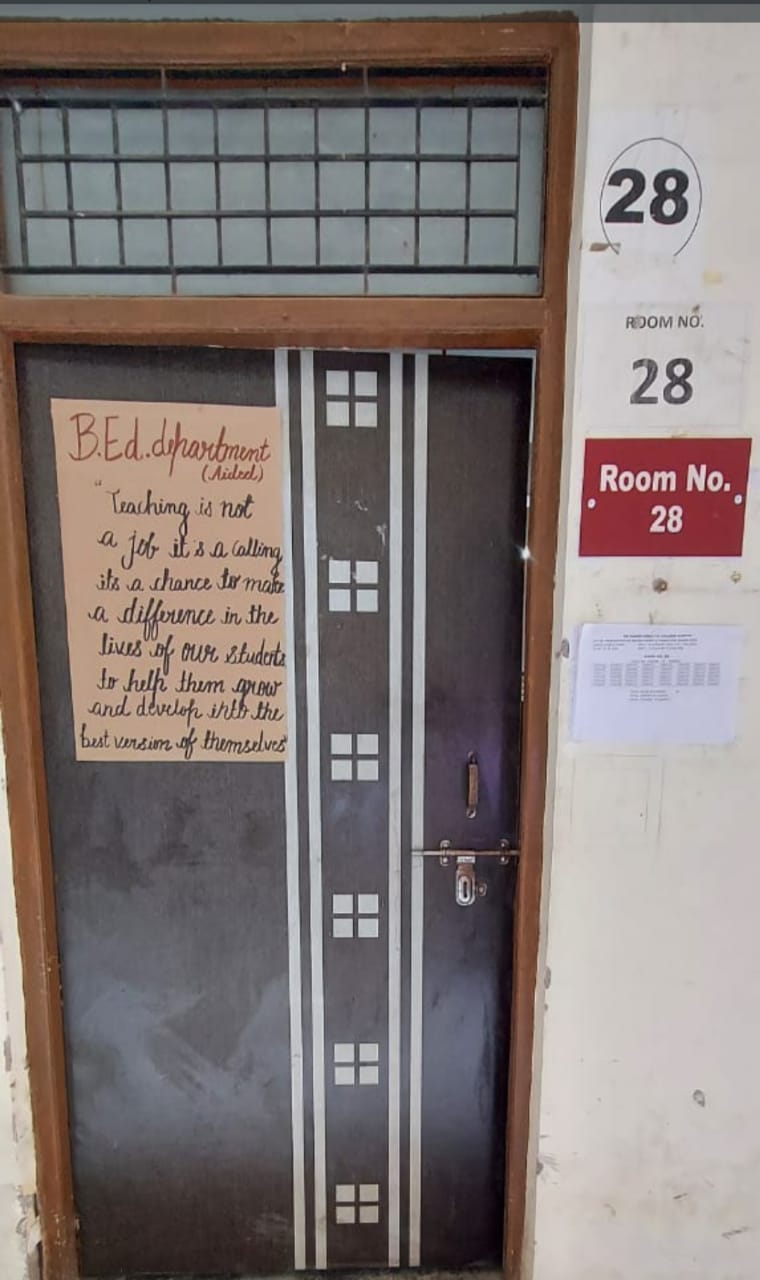 B.Ed. department
(Aided)
"Teaching is not
a job it's a calling
its a chance to make
a difference in the
lives of our students
to help them grow
and develop into the
best version of themselves"
28
ROOM NO.
28
Room No.
28